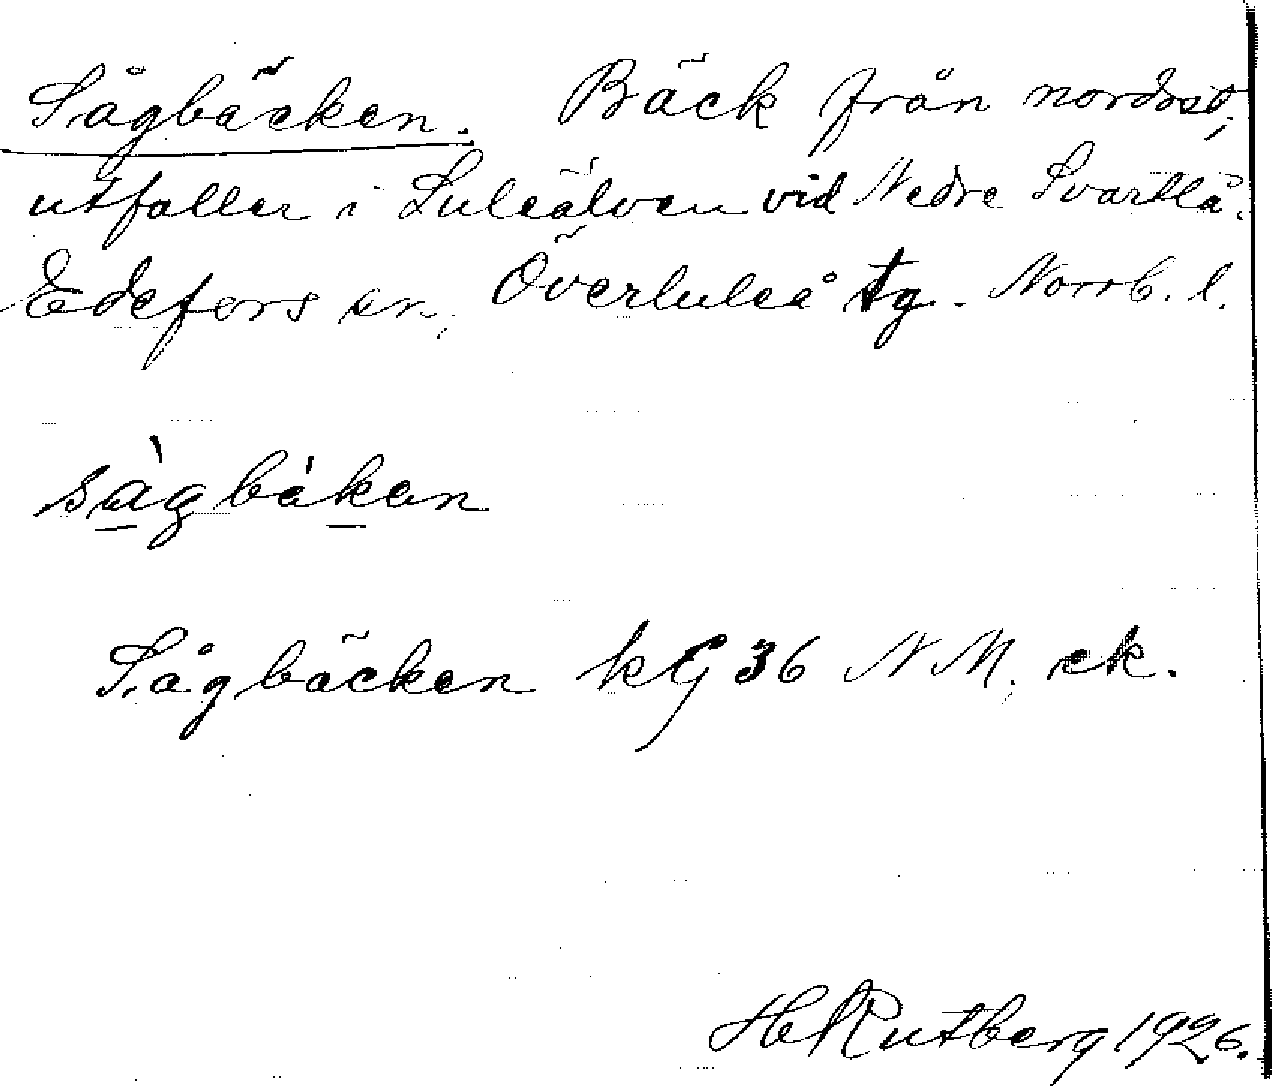 Sågbäcken. Bäck från nordost,
utfaller i Luleälven vid Nedre Svartlå.
Edefors sn, Överluleå tg. Norrb. l.
sàgbåkan
Sågbäcken kG 36 N M, ek.
H Rutberg 1926.